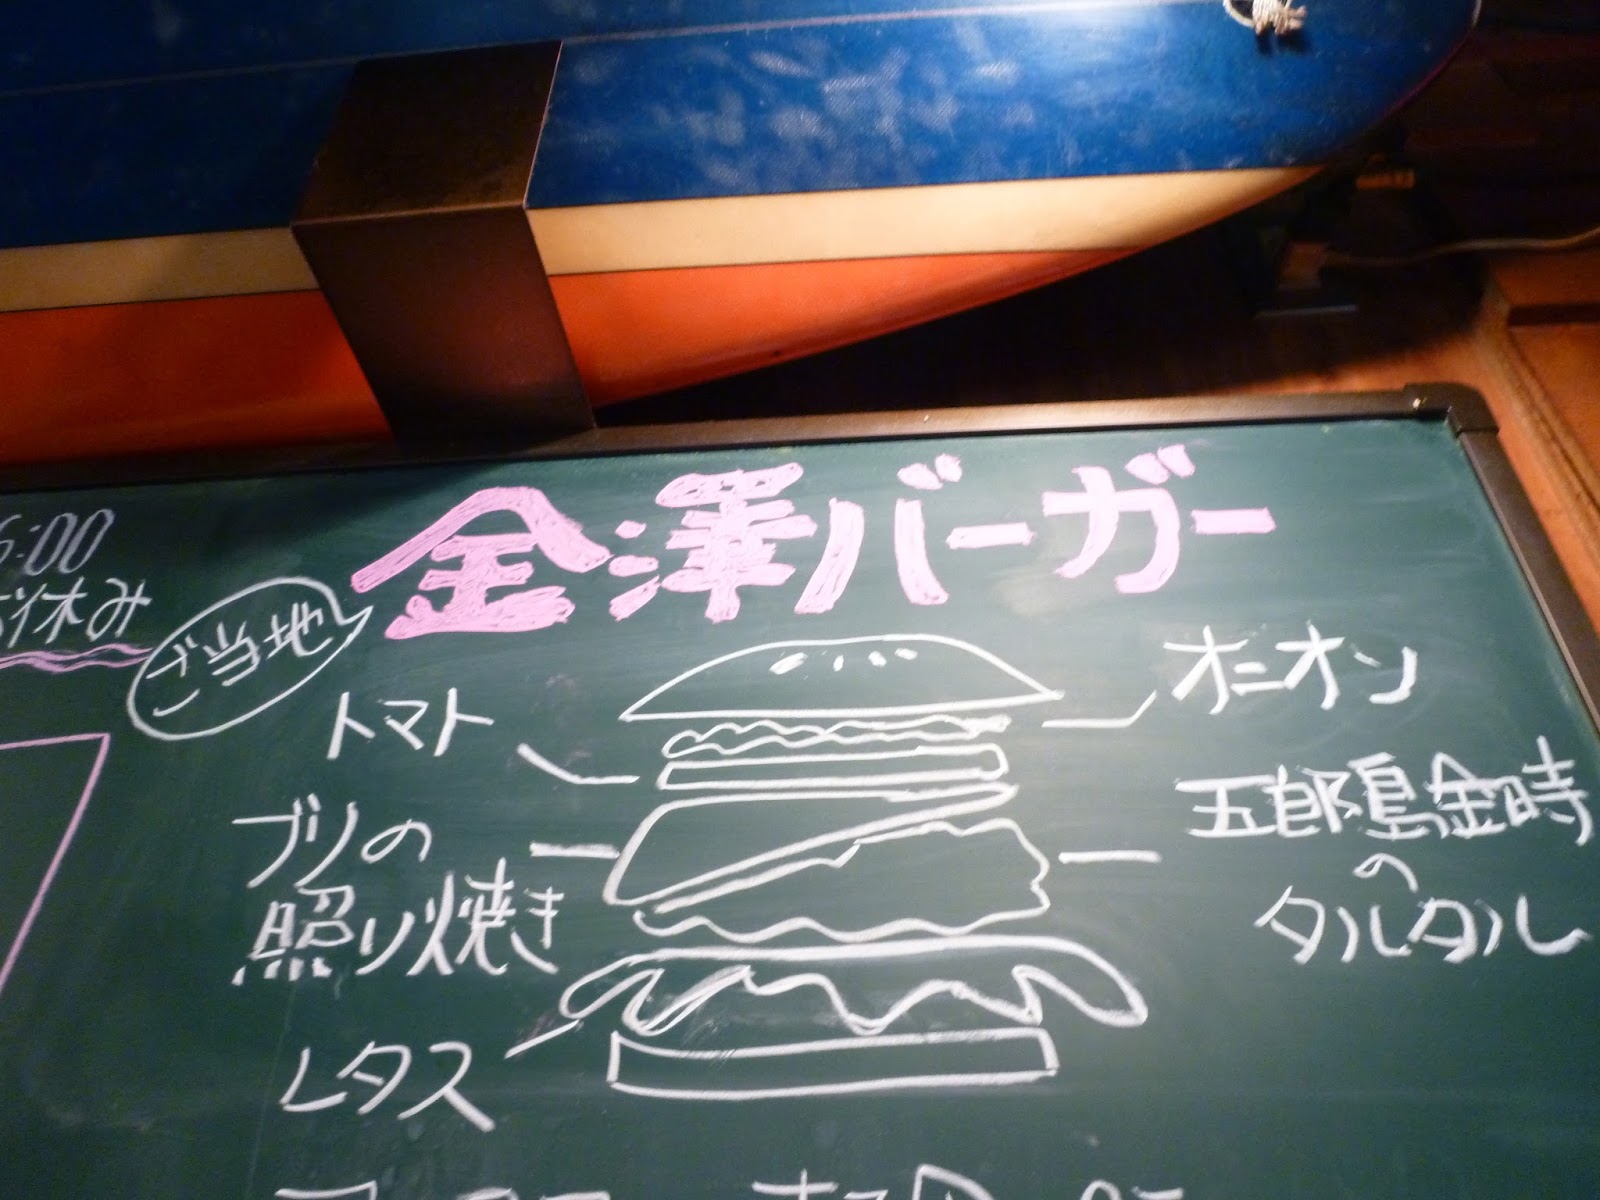 6:00
お休み
ご当地
金澤バーガー
トマト
オニオン
ブリの
照り焼き
五郎島金時
の
タルタル
レタス